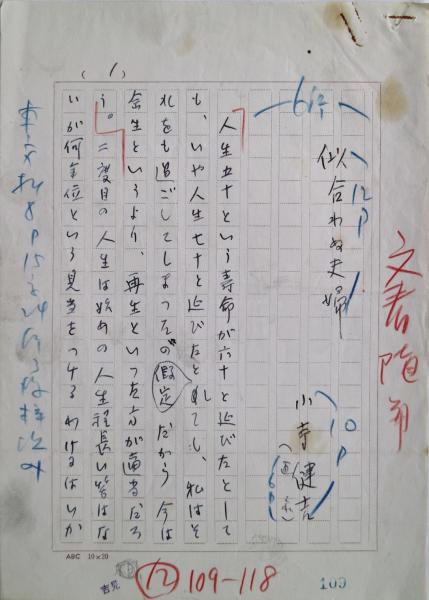 文春随筆
6行
似合わぬ夫婦
12P
小寺健吉
10P
(画家)
6P
(1)
人生五十という寿命が六十と延びたとして
も、いや人生七十と延びたとしても、私はそ
れをも過ごしてしまつたの 假定 だから今は
余生というより、再生といつた方が適当だろ
う。二度目の人生は始めの人生程長い筈はな
いが何全位という見当をつけるわけにはいか
本文 8P 15 24行
ABC 10×20
12 109-118
109